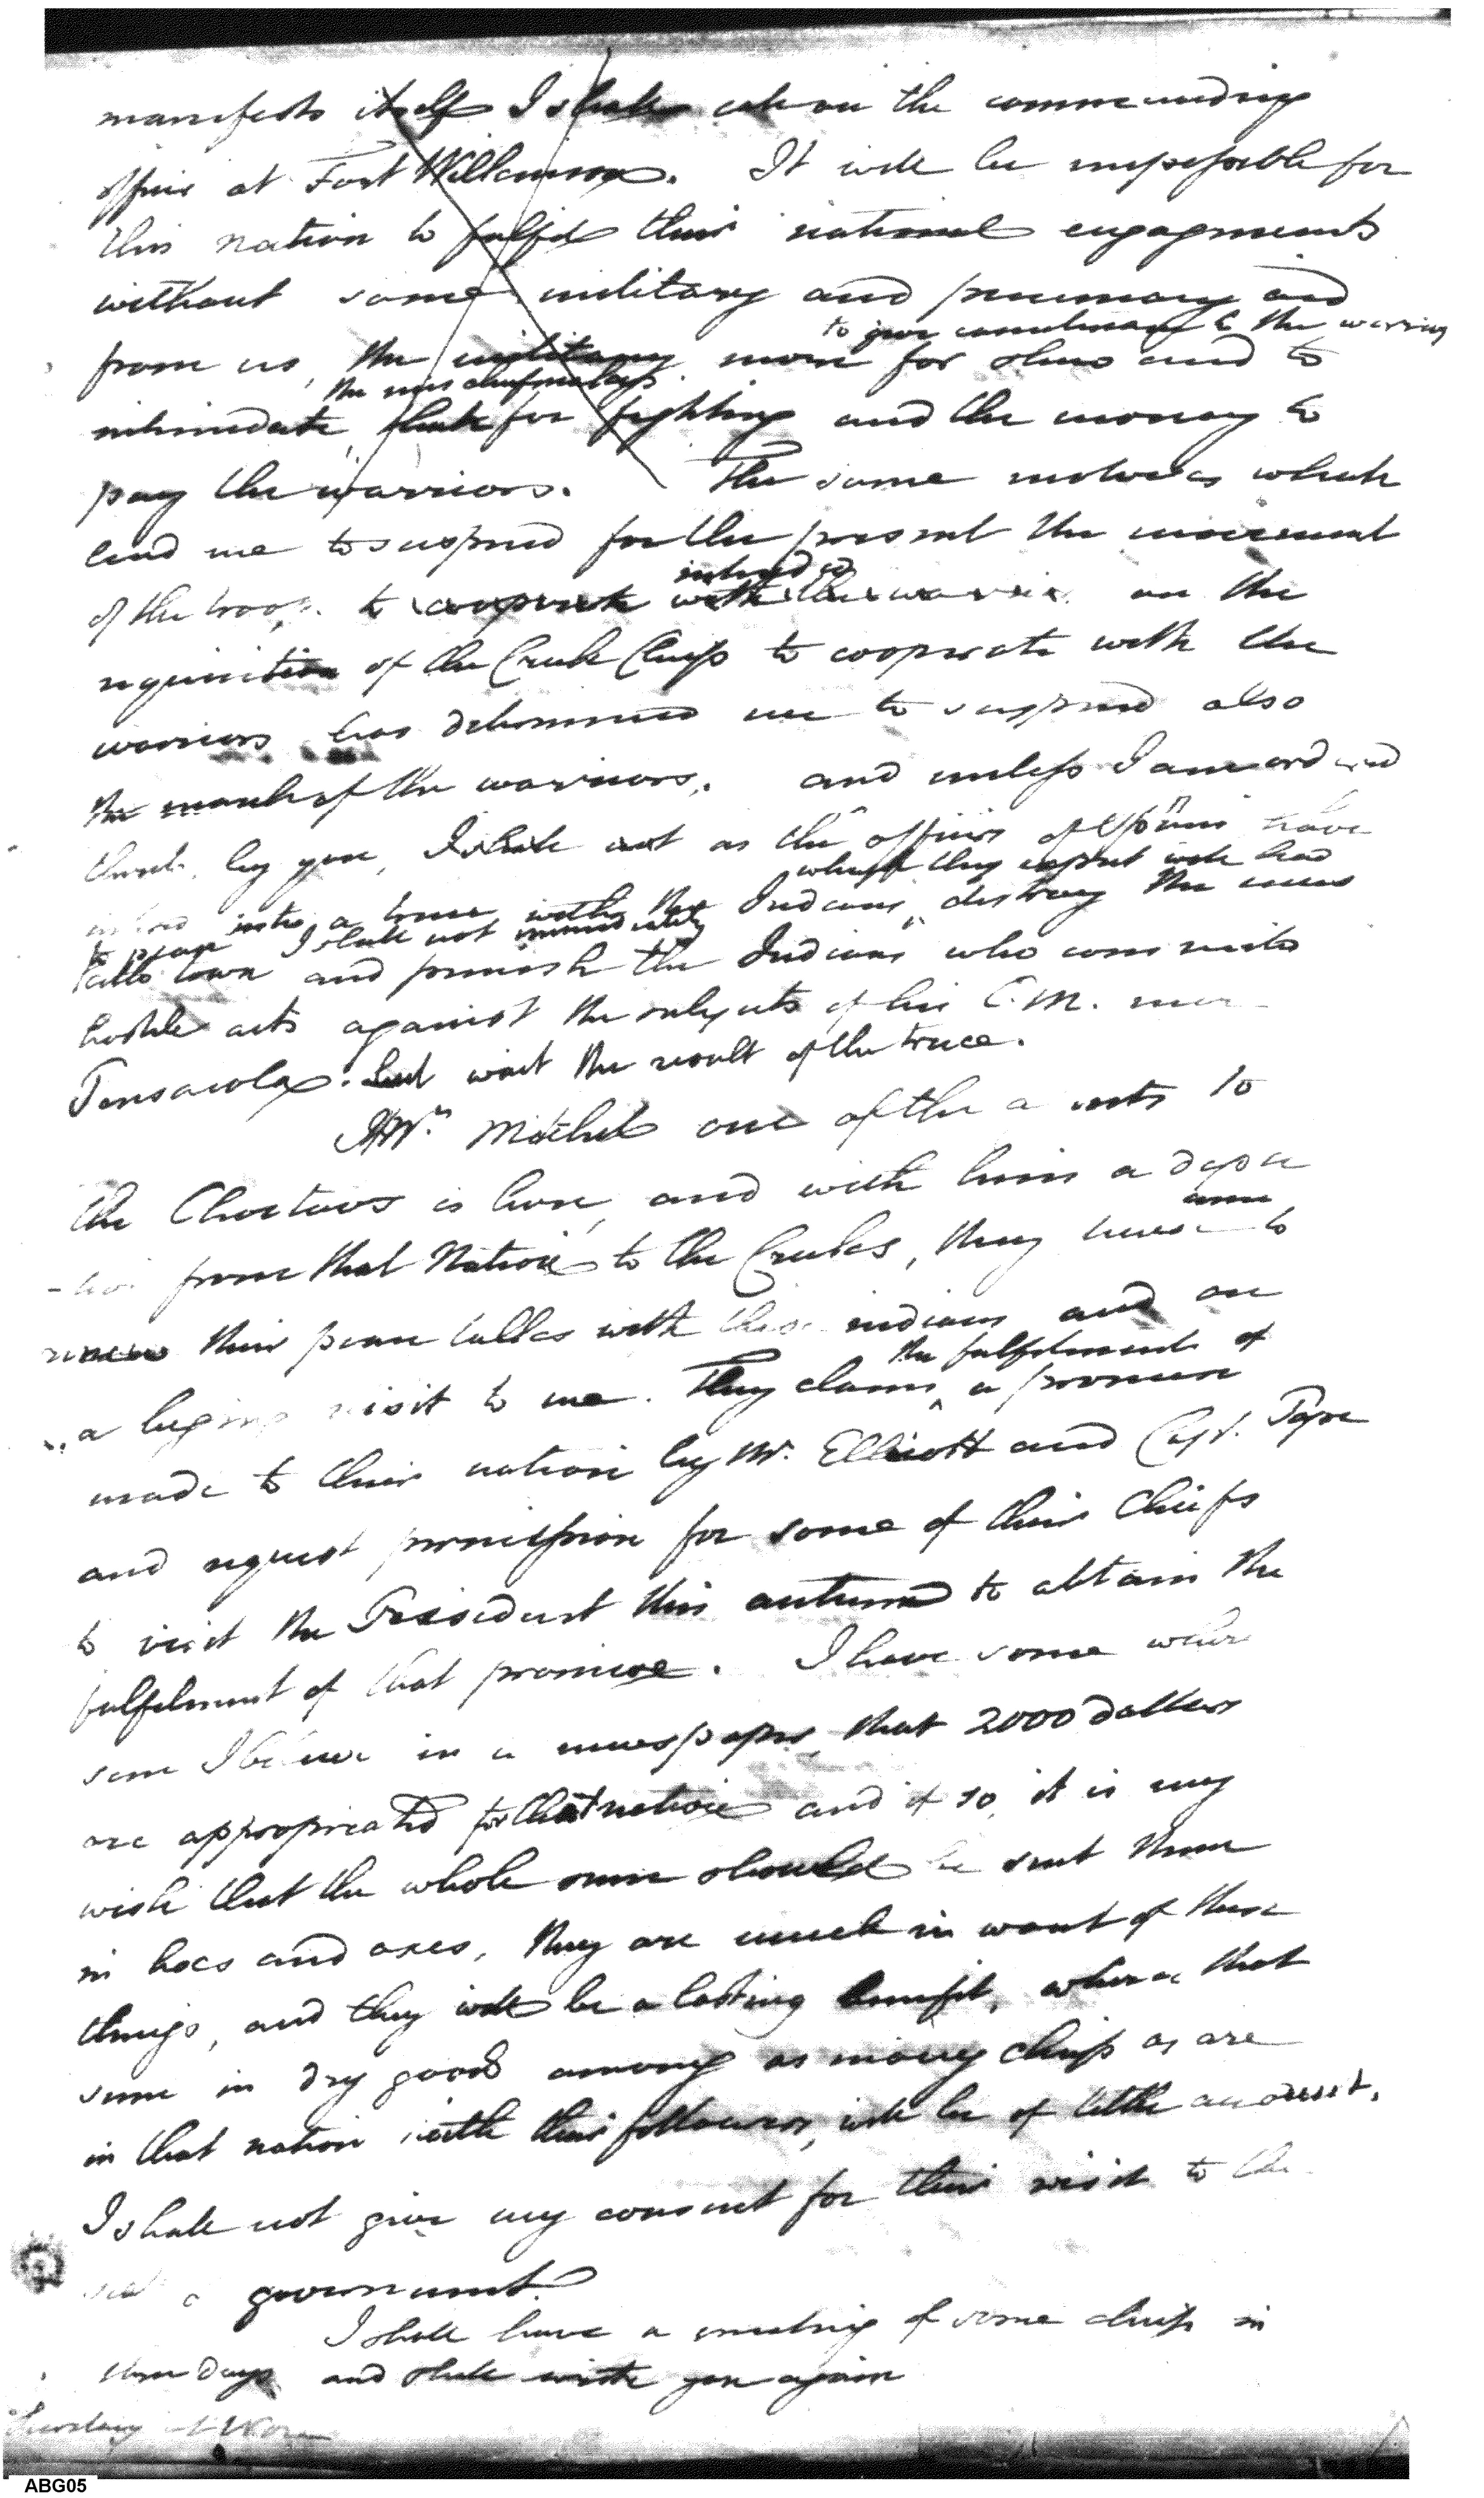 manifests itself I shall call on the commanding
officer at Fort Wilkinson. It will be impossible for
this nation to fulfil their national engagements
without some military and pecuniary aid
to give countenance to the warriors
from us, the military more for show and to
the mischiefmakers
intimidate, than for fighting and the money to
pay the warriors. The same motives which
lead me to suspend for the present the movement
intended
of the troops to cooperate with the warriors on the
requisition of the Creek Chiefs to cooperate with the
warriors has determined me to suspend also
the march of the warriors. and unless I am ordered
thereto by you, I shall not as the officers of Spain have
which they expect will lead
entered into a truce with the Indians, destroy the
to peace I shall not immediately
town and punish the Indians who commits
hostile acts against the subjects of his C.M. near
Pensacola. but wait the result of the truce.
Mr. Mitchel one of the agents to
the Choctaws is here, and with him a deputa
-tion from that Nation to the Creeks, they have come to
renew their peace talks with these indians and on
the fulfilment of
a begging visit to me. They claim a promise
made to their nation by Mr. Elliott and Capt. Pope
and request permission for some of their Chiefs
to visit the President this autumn to obtain the
fulfilment of that promise. I have some where
seen I believe in a newspaper, that 2000 dollars
are appropriated for that nation and if so, it is my
wish that the whole sum should be sent them
in hoes and axes, they are much in want of these
things, and they will be a lasting benefit, where as that
sum in dry goods among as many chiefs as are
in that nation with their followers, will be of little account.
I shall not give my consent for their visit to the
seat of government.
I shall have a meeting of some chiefs in
three days and shall write you again
Secretary of War
ABG05